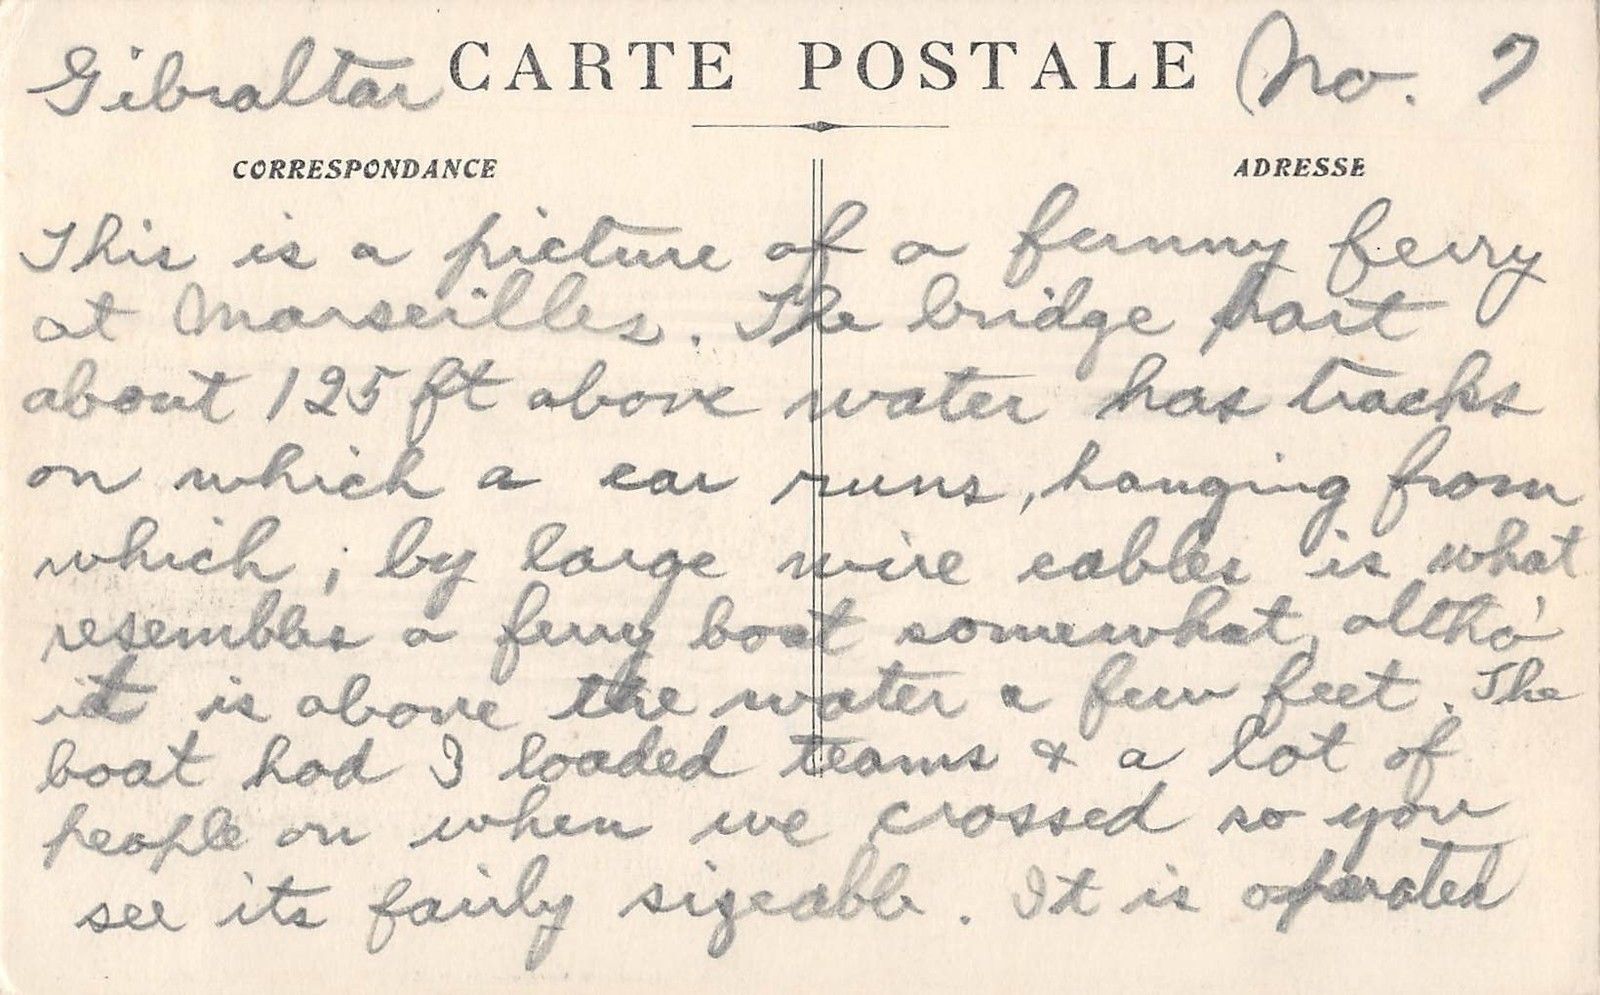 Gibraltar CARTE POSTALE No. 7
CORRESPONDANCE ADRESSE
This is a picture of a funny ferry
at Marseilles. The bridge part
about 125 ft above water has tracks
on which a car runs, hanging from
which, by large wire cables is what
resembles a ferry boat somewhat, altho'
it is above the water a few feet. The
boat had 3 loaded teams & a lot of
people on when we crossed so you
see its fairly sizeable. It is operated